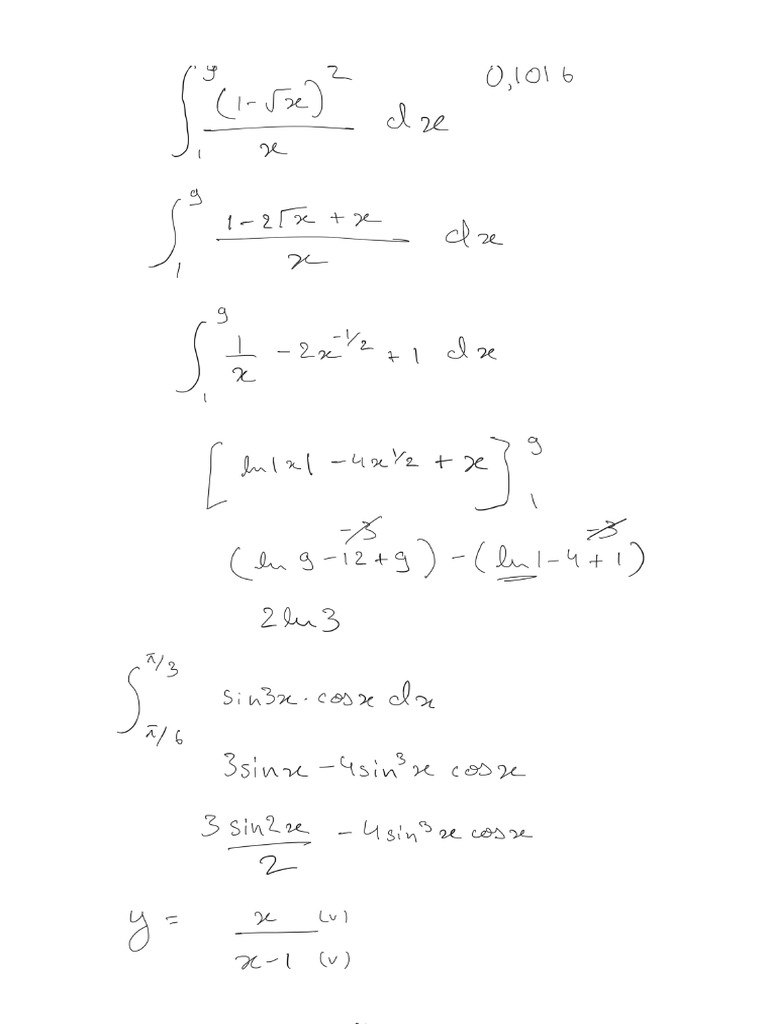 ∫₁⁹ (1-√x)² / x dx 0,1016
∫₁⁹ (1-2√x + x) / x dx
∫₁⁹ 1/x - 2x^(-1/2) + 1 dx
[ln|x| - 4x^(1/2) + x]₁⁹
-3 -3
(ln 9 - 12 + 9) - (ln 1 - 4 + 1)
2 ln 3
∫_(π/6)^(π/3) sin3x · cosx dx
3sinx - 4sin³x cosx
3 sin2x / 2 - 4sin³x cosx
y = x (u) / x-1 (v)